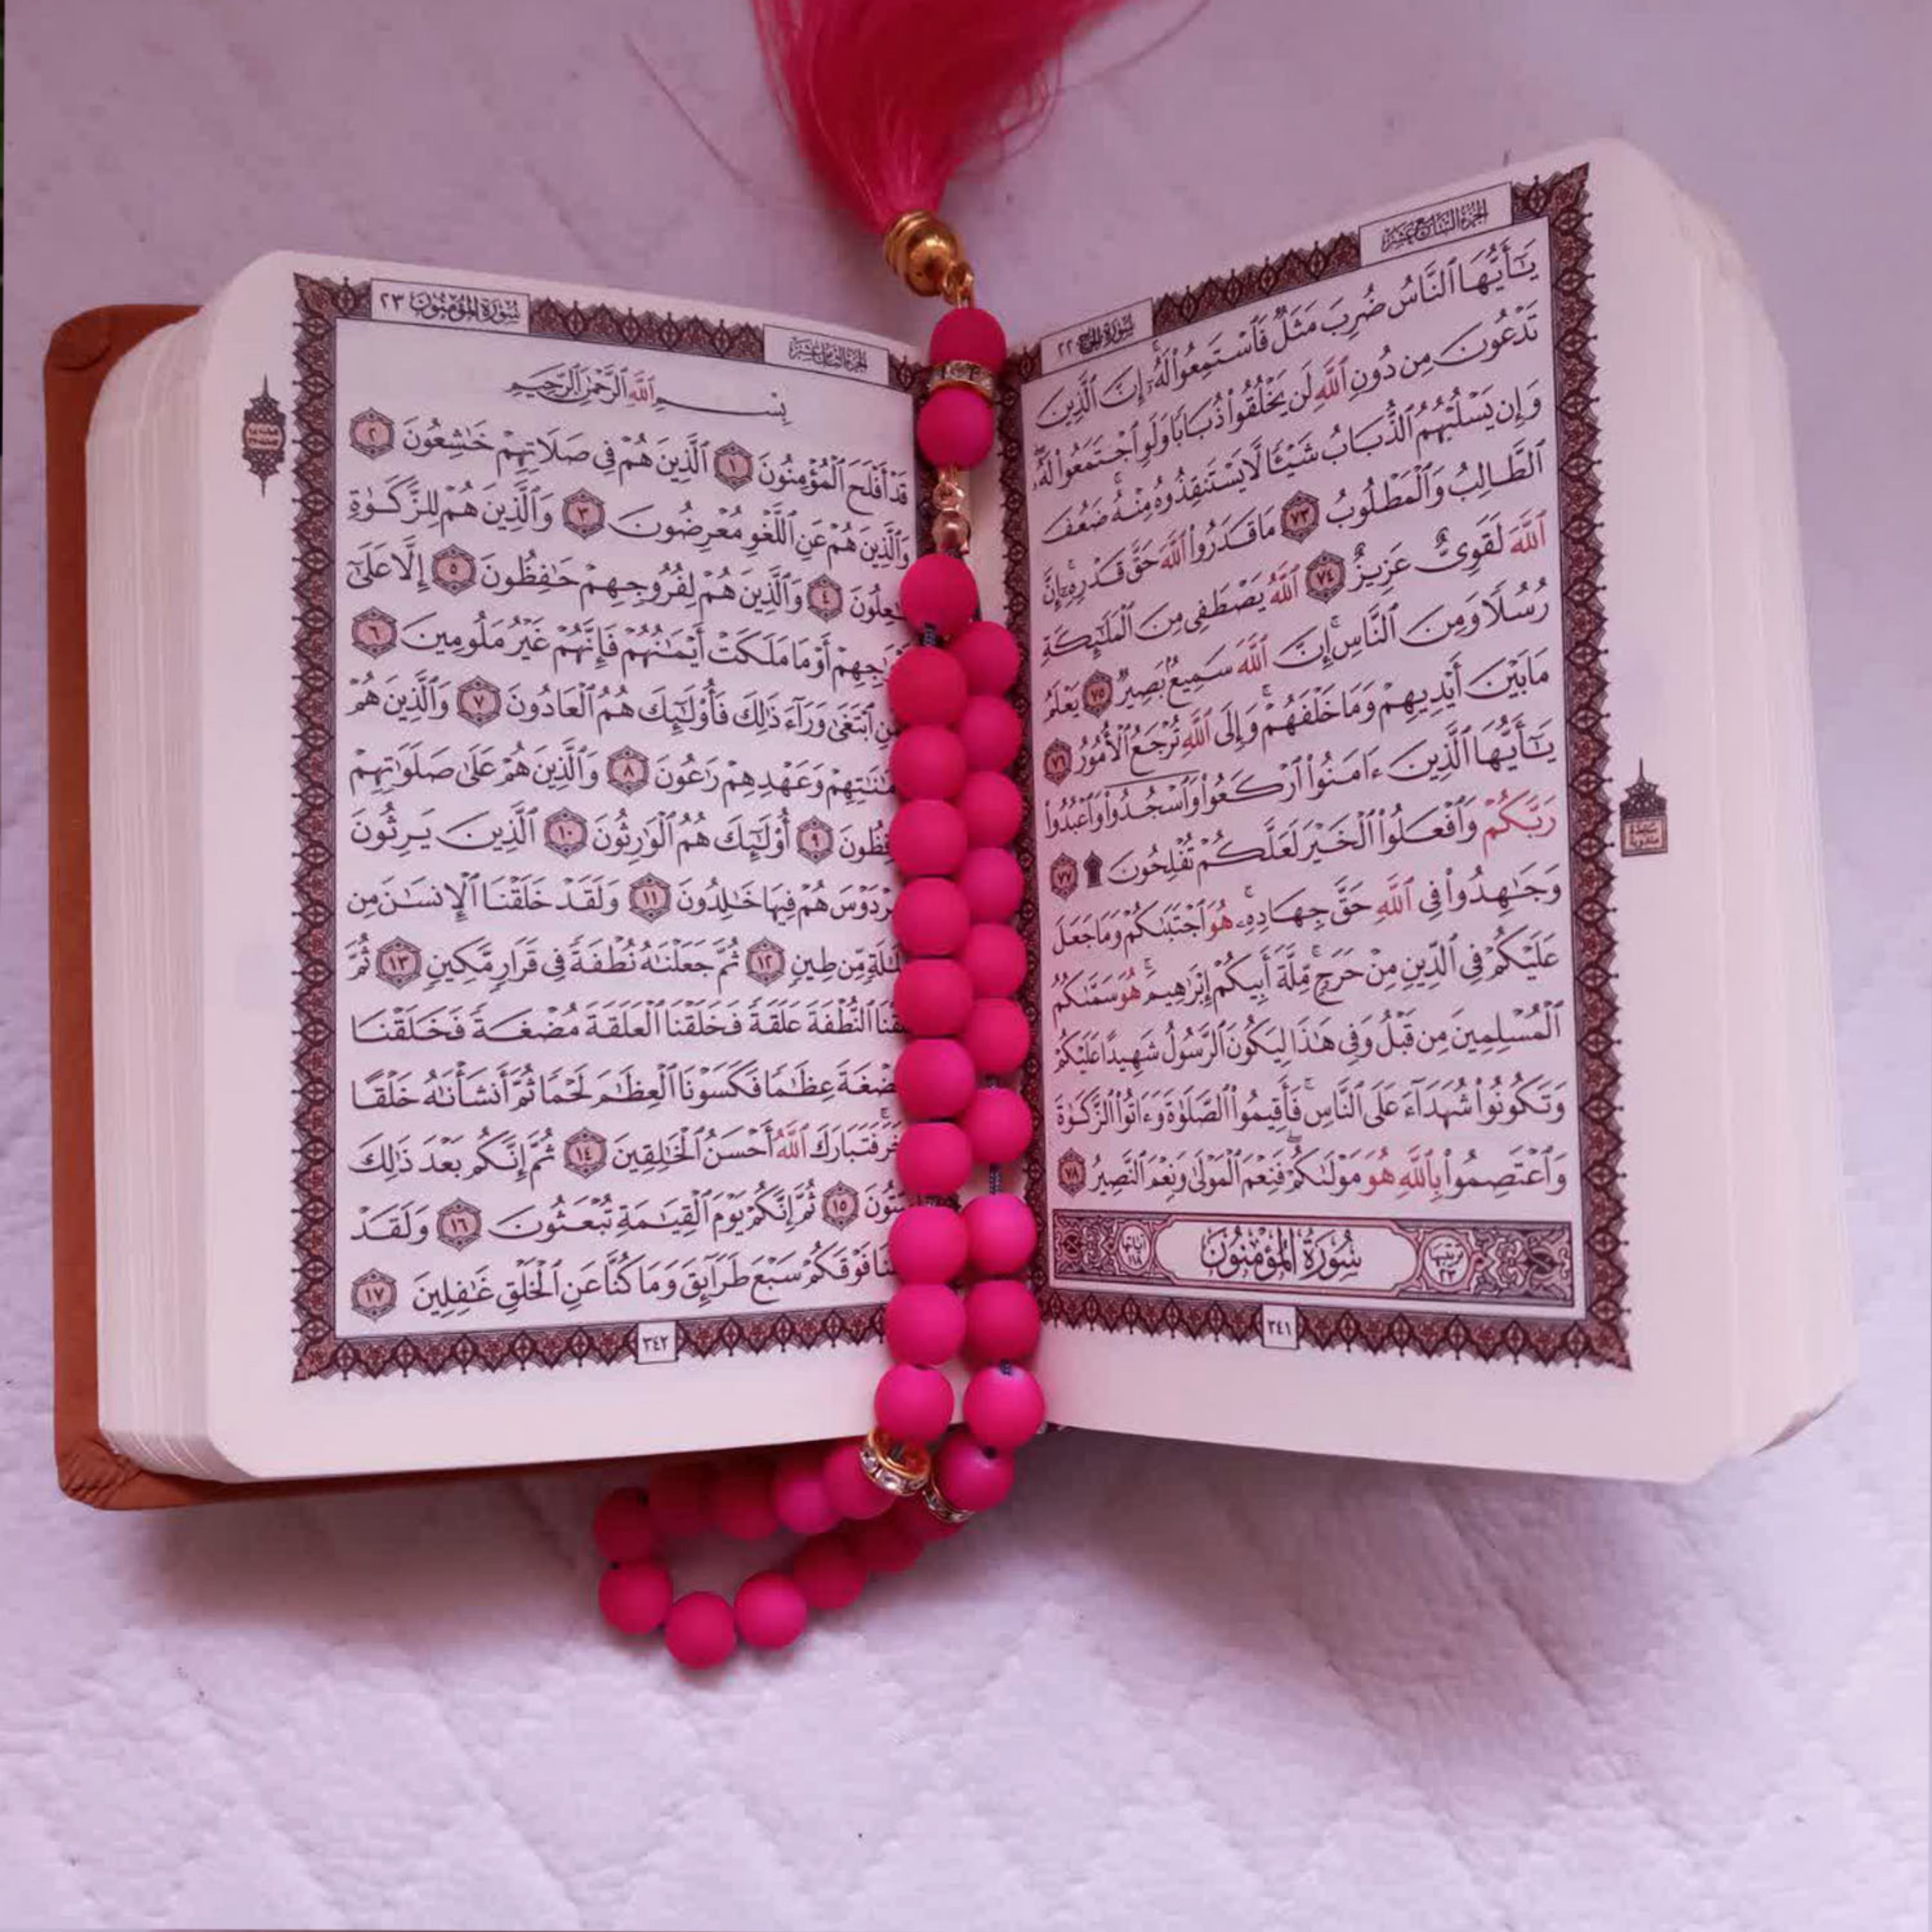 سورة الحج ٢٢
الجزء السابع عشر
يَـٰٓأَيُّهَا ٱلنَّاسُ ضُرِبَ مَثَلٌ فَٱسْتَمِعُوا۟ لَهُۥٓ ۚ إِنَّ ٱلَّذِينَ
تَدْعُونَ مِن دُونِ ٱللَّهِ لَن يَخْلُقُوا۟ ذُبَابًا وَلَوِ ٱجْتَمَعُوا۟ لَهُۥ ۖ
وَإِن يَسْلُبْهُمُ ٱلذُّبَابُ شَيْـًٔا لَّا يَسْتَنقِذُوهُ مِنْهُ ۚ ضَعُفَ
ٱلطَّالِبُ وَٱلْمَطْلُوبُ ٧٣ مَا قَدَرُوا۟ ٱللَّهَ حَقَّ قَدْرِهِۦٓ ۗ إِنَّ
ٱللَّهَ لَقَوِىٌّ عَزِيزٌ ٧٤ ٱللَّهُ يَصْطَفِى مِنَ ٱلْمَلَـٰٓئِكَةِ
رُسُلًا وَمِنَ ٱلنَّاسِ ۚ إِنَّ ٱللَّهَ سَمِيعٌۢ بَصِيرٌ ٧٥ يَعْلَمُ
مَا بَيْنَ أَيْدِيهِمْ وَمَا خَلْفَهُمْ ۗ وَإِلَى ٱللَّهِ تُرْجَعُ ٱلْأُمُورُ ٧٦
يَـٰٓأَيُّهَا ٱلَّذِينَ ءَامَنُوا۟ ٱرْكَعُوا۟ وَٱسْجُدُوا۟ وَٱعْبُدُوا۟
رَبَّكُمْ وَٱفْعَلُوا۟ ٱلْخَيْرَ لَعَلَّكُمْ تُفْلِحُونَ ۩ ٧٧
وَجَـٰهِدُوا۟ فِى ٱللَّهِ حَقَّ جِهَادِهِۦ ۚ هُوَ ٱجْتَبَىٰكُمْ وَمَا جَعَلَ
عَلَيْكُمْ فِى ٱلدِّينِ مِنْ حَرَجٍ ۚ مِّلَّةَ أَبِيكُمْ إِبْرَٰهِيمَ ۚ هُوَ سَمَّىٰكُمُ
ٱلْمُسْلِمِينَ مِن قَبْلُ وَفِى هَـٰذَا لِيَكُونَ ٱلرَّسُولُ شَهِيدًا عَلَيْكُمْ
وَتَكُونُوا۟ شُهَدَآءَ عَلَى ٱلنَّاسِ ۚ فَأَقِيمُوا۟ ٱلصَّلَوٰةَ وَءَاتُوا۟ ٱلزَّكَوٰةَ
وَٱعْتَصِمُوا۟ بِٱللَّهِ هُوَ مَوْلَىٰكُمْ ۖ فَنِعْمَ ٱلْمَوْلَىٰ وَنِعْمَ ٱلنَّصِيرُ ٧٨
ترتيبها ٢٣ سُورَةُ المُؤْمِنُونَ آياتها ١١٨
٣٤١
سجدة مندوبة
الجزء الثامن عشر
سورة المؤمنون ٢٣
بِسْمِ ٱللَّهِ ٱلرَّحْمَـٰنِ ٱلرَّحِيمِ
قَدْ أَفْلَحَ ٱلْمُؤْمِنُونَ ١ ٱلَّذِينَ هُمْ فِى صَلَاتِهِمْ خَـٰشِعُونَ ٢
وَٱلَّذِينَ هُمْ عَنِ ٱللَّغْوِ مُعْرِضُونَ ٣ وَٱلَّذِينَ هُمْ لِلزَّكَوٰةِ
ـٰعِلُونَ ٤ وَٱلَّذِينَ هُمْ لِفُرُوجِهِمْ حَـٰفِظُونَ ٥ إِلَّا عَلَىٰٓ
ٰجِهِمْ أَوْ مَا مَلَكَتْ أَيْمَـٰنُهُمْ فَإِنَّهُمْ غَيْرُ مَلُومِينَ ٦
ـنِ ٱبْتَغَىٰ وَرَآءَ ذَٰلِكَ فَأُو۟لَـٰٓئِكَ هُمُ ٱلْعَادُونَ ٧ وَٱلَّذِينَ هُمْ
ـٰنَـٰتِهِمْ وَعَهْدِهِمْ رَٰعُونَ ٨ وَٱلَّذِينَ هُمْ عَلَىٰ صَلَوَٰتِهِمْ
ـفِظُونَ ٩ أُو۟لَـٰٓئِكَ هُمُ ٱلْوَٰرِثُونَ ١٠ ٱلَّذِينَ يَرِثُونَ
ـرْدَوْسَ هُمْ فِيهَا خَـٰلِدُونَ ١١ وَلَقَدْ خَلَقْنَا ٱلْإِنسَـٰنَ مِن
ـلَـٰلَةٍ مِّن طِينٍ ١٢ ثُمَّ جَعَلْنَـٰهُ نُطْفَةً فِى قَرَارٍ مَّكِينٍ ١٣ ثُمَّ
ـقْنَا ٱلنُّطْفَةَ عَلَقَةً فَخَلَقْنَا ٱلْعَلَقَةَ مُضْغَةً فَخَلَقْنَا
ـضْغَةَ عِظَـٰمًا فَكَسَوْنَا ٱلْعِظَـٰمَ لَحْمًا ثُمَّ أَنشَأْنَـٰهُ خَلْقًا
ـخَرَ ۚ فَتَبَارَكَ ٱللَّهُ أَحْسَنُ ٱلْخَـٰلِقِينَ ١٤ ثُمَّ إِنَّكُم بَعْدَ ذَٰلِكَ
ـتُونَ ١٥ ثُمَّ إِنَّكُمْ يَوْمَ ٱلْقِيَـٰمَةِ تُبْعَثُونَ ١٦ وَلَقَدْ
ـنَا فَوْقَكُمْ سَبْعَ طَرَآئِقَ وَمَا كُنَّا عَنِ ٱلْخَلْقِ غَـٰفِلِينَ ١٧
٣٤٢